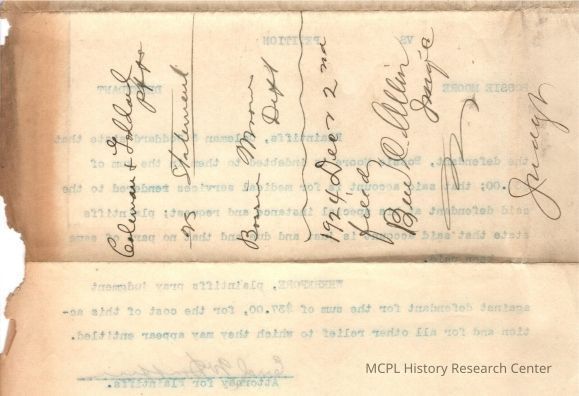 Coleman & Goddard
Plffs
vs Statement
Moore
Deft
1924 Decr 2nd
Judge
Judgt
VS PETITION
MOORE DEFENDANT
Plaintiffs, Coleman & Goddard state that
the defendant, Moore indebted to them in the sum of
.00; that said account is for medical services rendered to the
said defendant at his special instance and request; plaintiffs
state that said account is just and due and that no part of same
WHEREFORE, plaintiffs pray judgment
against defendant for the sum of $37.00, for the cost of this ac-
tion and for all other relief to which they may appear entitled.
Attorney for Plaintiffs.
MCPL History Research Center